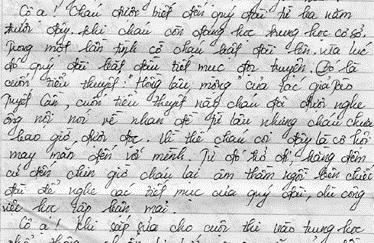 Cô ạ! Cháu được biết đến quý đài từ ba năm
trước đây, khi cháu còn đang học trung học cơ sở.
Trong một lần tình cờ cháu bật đài lên, vừa lúc
đó quý đài bắt đầu tiết mục đọc truyện. Đó là
cuốn tiểu thuyết: "Hồng lâu mộng" của tác giả Tào
Tuyết Cần, cuốn tiểu thuyết này cháu đã được nghe
ông nội nói về nhan đề từ lâu nhưng cháu chưa
bao giờ được đọc. Vì thế cháu coi đây là cơ hội
may mắn đến với mình. Từ đó trở đi, hàng đêm
cứ đến chín giờ cháu lại âm thầm ngồi bên chiếc
đài để nghe các tiết mục của quý đài, dù công
việc học tập bận mải.
Cô ạ! Khi sắp sửa cho cuộc thi vào trung học